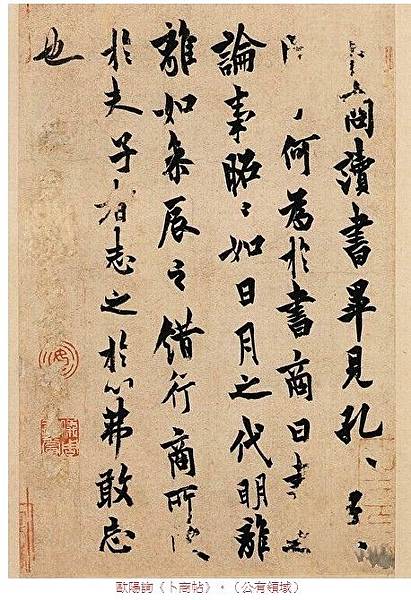 商讀書畢見孔、子、
、何為於書商曰書
論事昭〻如日月之代明離
離如參辰之錯行商所
於夫子者志之於心弗敢忘
也
歐陽詢《卜商帖》。(公有領域)